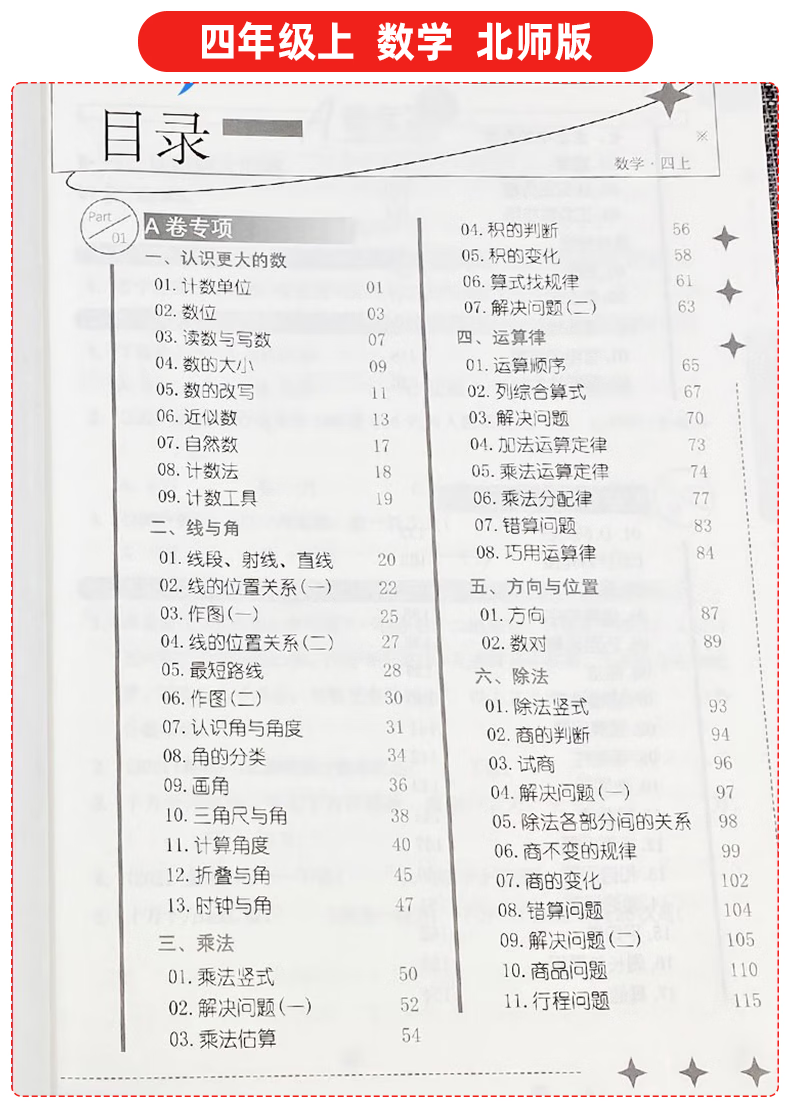 四年级上 数学 北师版
目录
※
数学·四上
Part 01
A卷专项
一、认识更大的数
01.计数单位 01
02.数位 03
03.读数与写数 07
04.数的大小 09
05.数的改写 11
06.近似数 13
07.自然数 17
08.计数法 18
09.计数工具 19
二、线与角
01.线段、射线、直线 20
02.线的位置关系(一) 22
03.作图(一) 25
04.线的位置关系(二) 27
05.最短路线 28
06.作图(二) 30
07.认识角与角度 31
08.角的分类 34
09.画角 36
10.三角尺与角 38
11.计算角度 40
12.折叠与角 45
13.时钟与角 47
三、乘法
01.乘法竖式 50
02.解决问题(一) 52
03.乘法估算 54
04.积的判断 56
05.积的变化 58
06.算式找规律 61
07.解决问题(二) 63
四、运算律
01.运算顺序 65
02.列综合算式 67
03.解决问题 70
04.加法运算定律 73
05.乘法运算定律 74
06.乘法分配律 77
07.错算问题 83
08.巧用运算律 84
五、方向与位置
01.方向 87
02.数对 89
六、除法
01.除法竖式 93
02.商的判断 94
03.试商 96
04.解决问题(一) 97
05.除法各部分间的关系 98
06.商不变的规律 99
07.商的变化 102
08.错算问题 104
09.解决问题(二) 105
10.商品问题 110
11.行程问题 115